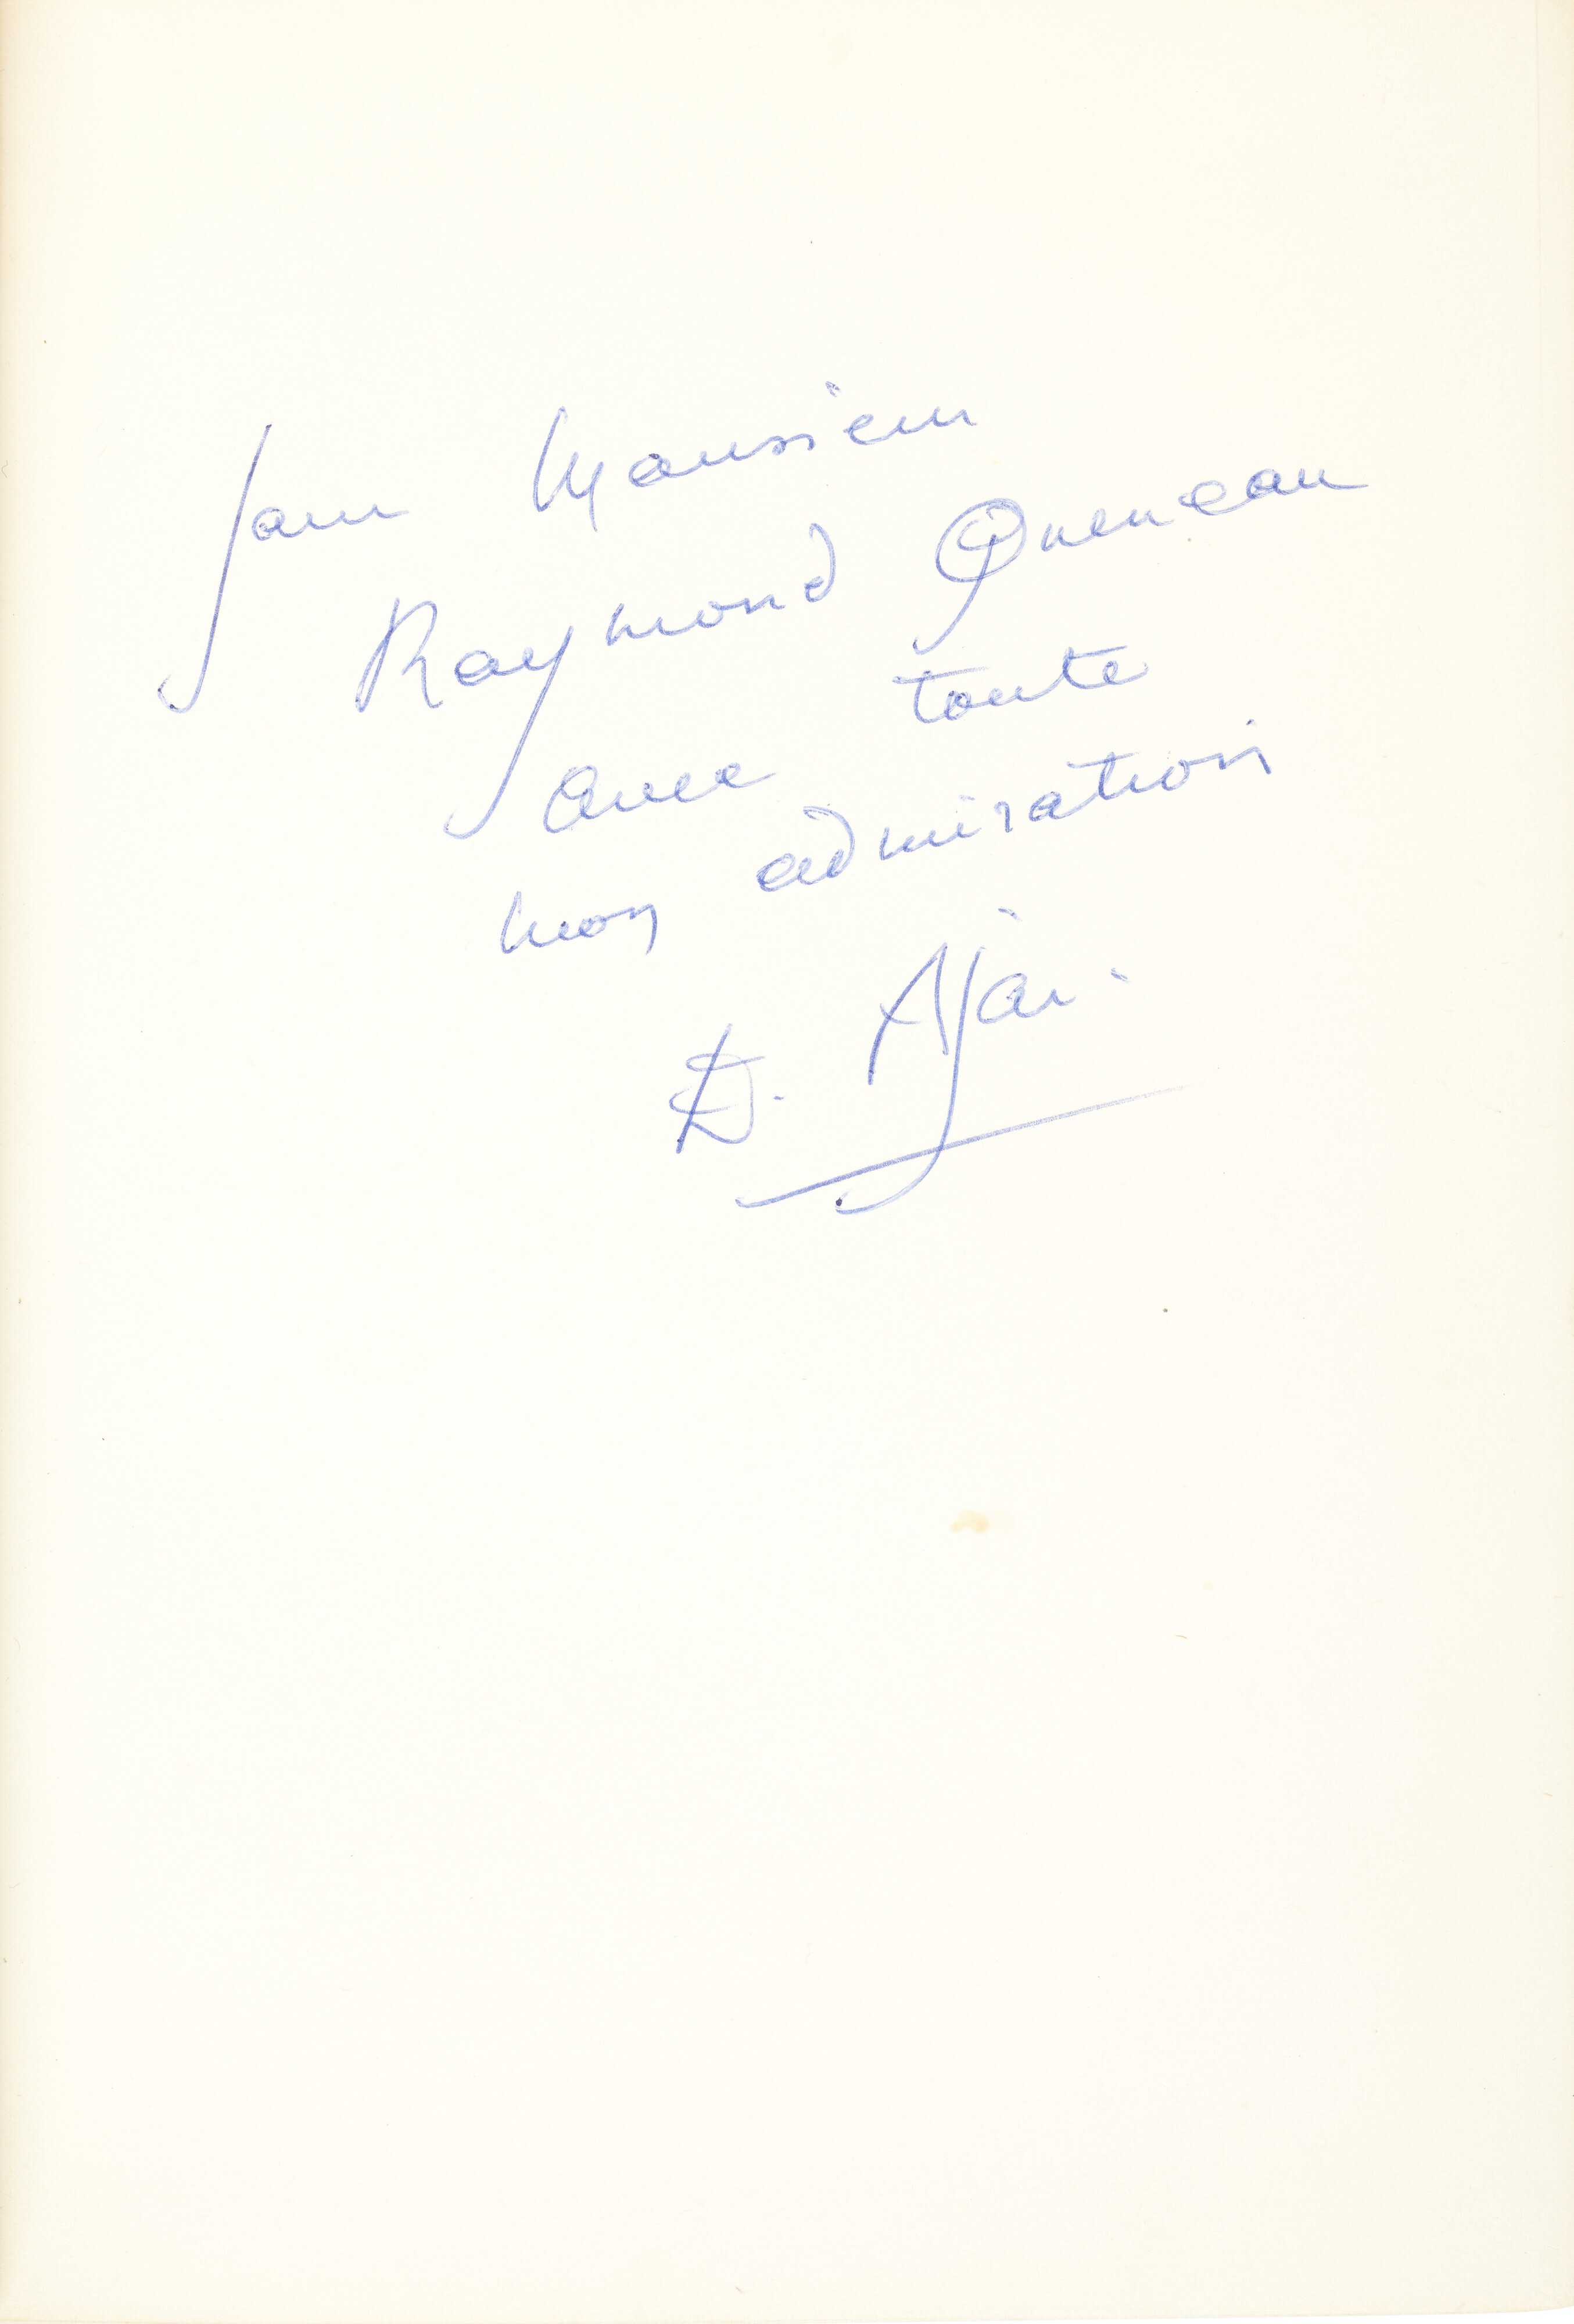 Pour Monsieur
Raymond Queneau
avec toute
mon admiration
D. Ajai